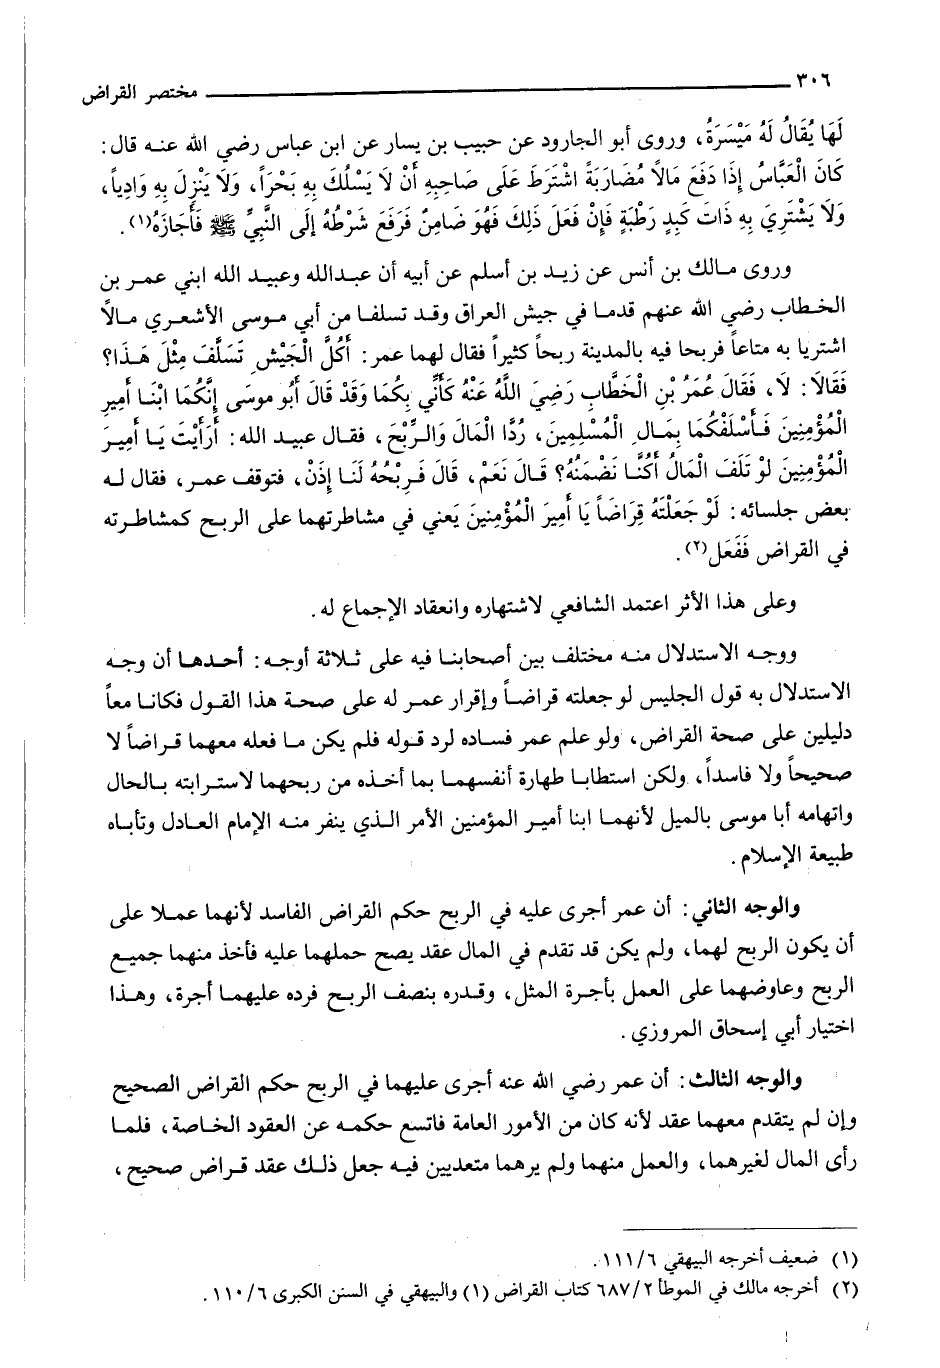 ٣٠٦ مختصر القراض
لَهَا يُقَالُ لَهُ مَيْسَرَةُ، وروى أبو الجارود عن حبيب بن يسار عن ابن عباس رضي الله عنه قال:
كَانَ الْعَبَّاسُ إِذَا دَفَعَ مَالاً مُضَارَبَةً اشْتَرَطَ عَلَى صَاحِبِهِ أَنْ لَا يَسْلُكَ بِهِ بَحْرَاً، وَلَا يَنْزِلَ بِهِ وَادِياً،
وَلَا يَشْتَرِيَ بِهِ ذَاتَ كَبِدٍ رَطْبَةٍ فَإِنْ فَعَلَ ذَلِكَ فَهُوَ ضَامِنٌ فَرَفَعَ شَرْطُهُ إِلَى النَّبِيِّ ﷺ فَأَجَازَهُ(١).
وروى مالك بن أنس عن زيد بن أسلم عن أبيه أن عبدالله وعبيد الله ابني عمر بن
الخطاب رضي الله عنهم قدما في جيش العراق وقد تسلفا من أبي موسى الأشعري مالاً
اشتريا به متاعاً فربحا فيه بالمدينة ربحاً كثيراً فقال لهما عمر: أَكُلَّ الْجَيْشِ تَسَلَّفَ مِثْلَ هَذَا؟
فَقَالَا: لَا، فَقَالَ عُمَرُ بْنِ الْخَطَّابِ رَضِيَ اللَّهُ عَنْهُ كَأَنِّي بِكُمَا وَقَدْ قَالَ أَبُو موسَى إِنَّكُمَا ابْنَا أَمِيرِ
الْمُؤْمِنِينَ فَأَسْلَفْكُمَا بِمَالِ الْمُسْلِمِينَ، رُدَّا الْمَالَ وَالرِّبْحَ، فقال عبيد الله: أَرَأَيْتَ يَا أَمِيرَ
الْمُؤْمِنِينَ لوْ تَلَفَ الْمَالُ أَكُنَّا نَضْمَنُهُ؟ قَالَ نَعَمْ، قَالَ فَرِبْحُهُ لَنَا إِذَنْ، فتوقف عمر، فقال له
بعض جلسائه: لَوْ جَعَلْتَهُ قِرَاضَاً يَا أَمِيرَ الْمُؤْمِنِينَ يَعني في مشاطرتهما على الربح كمشاطرته
في القراض فَفَعَل(٢).
وعلى هذا الأثر اعتمد الشافعي لاشتهاره وانعقاد الإجماع له.
ووجه الاستدلال منه مختلف بين أصحابنا فيه على ثلاثة أوجه: أحدها أن وجه
الاستدلال به قول الجليس لو جعلته قراضاً وإقرار عمر له على صحة هذا القول فكانا معاً
دليلين على صحة القراض، ولو علم عمر فساده لرد قوله فلم يكن ما فعله معهما قراضاً لا
صحيحاً ولا فاسداً، ولكن استطابا طهارة أنفسهما بما أخذه من ربحهما لاسترابته بالحال
واتهامه أبا موسى بالميل لأنهما ابنا أمير المؤمنين الأمر الذي ينفر منه الإمام العادل وتأباه
طبيعة الإسلام.
والوجه الثاني: أن عمر أجرى عليه في الربح حكم القراض الفاسد لأنهما عملا على
أن يكون الربح لهما، ولم يكن قد تقدم في المال عقد يصح حملهما عليه فأخذ منهما جميع
الربح وعاوضهما على العمل بأجرة المثل، وقدره بنصف الربح فرده عليهما أجرة، وهذا
اختيار أبي إسحاق المروزي.
والوجه الثالث: أن عمر رضي الله عنه أجرى عليهما في الربح حكم القراض الصحيح
وإن لم يتقدم معهما عقد لأنه كان من الأمور العامة فاتسع حكمه عن العقود الخاصة، فلما
رأى المال لغيرهما، والعمل منهما ولم يرهما متعديين فيه جعل ذلك عقد قراض صحيح،
(١) ضعيف أخرجه البيهقي ٦/١١١.
(٢) أخرجه مالك في الموطأ ٢/٦٨٧ كتاب القراض (١) والبيهقي في السنن الكبرى ٦/١١٠.